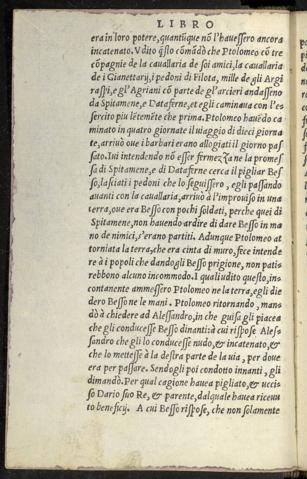 LIBRO
era in loro potere, quantũque nõ l'hauessero ancora
incatenato. Vdito q̃sto comãdò che Ptolomeo cõ tre
cõpagnie de la cauallaria de soi amici, la cauallaria
de i Gianettarij, i pedoni di Filota, mille de gli Argi
raspi, e gl'Agriani cõ parte de gl'arcieri andasseno
da Spitamene, e Dataferne, et egli caminaua con l'es
sercito piu lẽtemẽte che prima. Ptolomeo hauẽdo ca
minato in quatro giornate il uiaggio di dieci giorna
te, arriuò oue i barbari erano allogiati il giorno pas
sato. Iui intendendo nõ esser fermezza ne la promes
sa di Spitamene, e di Dataferne cerca il pigliar Bes
so, lasciati i pedoni che lo seguissero, egli passando
auanti con la cauallaria, arriuò a l'improuiso in una
terra, oue era Besso con pochi soldati, perche quei di
Spitamene, non hauendo ardire di dare Besso in ma
no de nimici, s'erano partiti. Adunque Ptolomeo at
torniata la terra, che era cinta di muro, fece intende
re à i popoli che dando gli Besso prigione, non patis
rebbono alcuno incommodo. I quali udito questo, ins
contanente ammessero Ptolomeo ne la terra, egli die
dero Besso ne le mani. Ptolomeo ritornando, mans
dò à chiedere ad Alessandro, in che guisa gli piacea
che gli conducesse Besso dinanti à cui rispose Aless
sandro che gli lo conducesse nudo, & incatenato, &
che lo mettesse à la destra parte de la uia, per doue
era per passare. Sendogli poi condotto innanti, gli
dimandò. Per qual cagione hauea pigliato, & uccis
so Dario suo Re, & parente, dal quale hauea riceuu
to beneficij. A cui Besso rispose, che non solamente